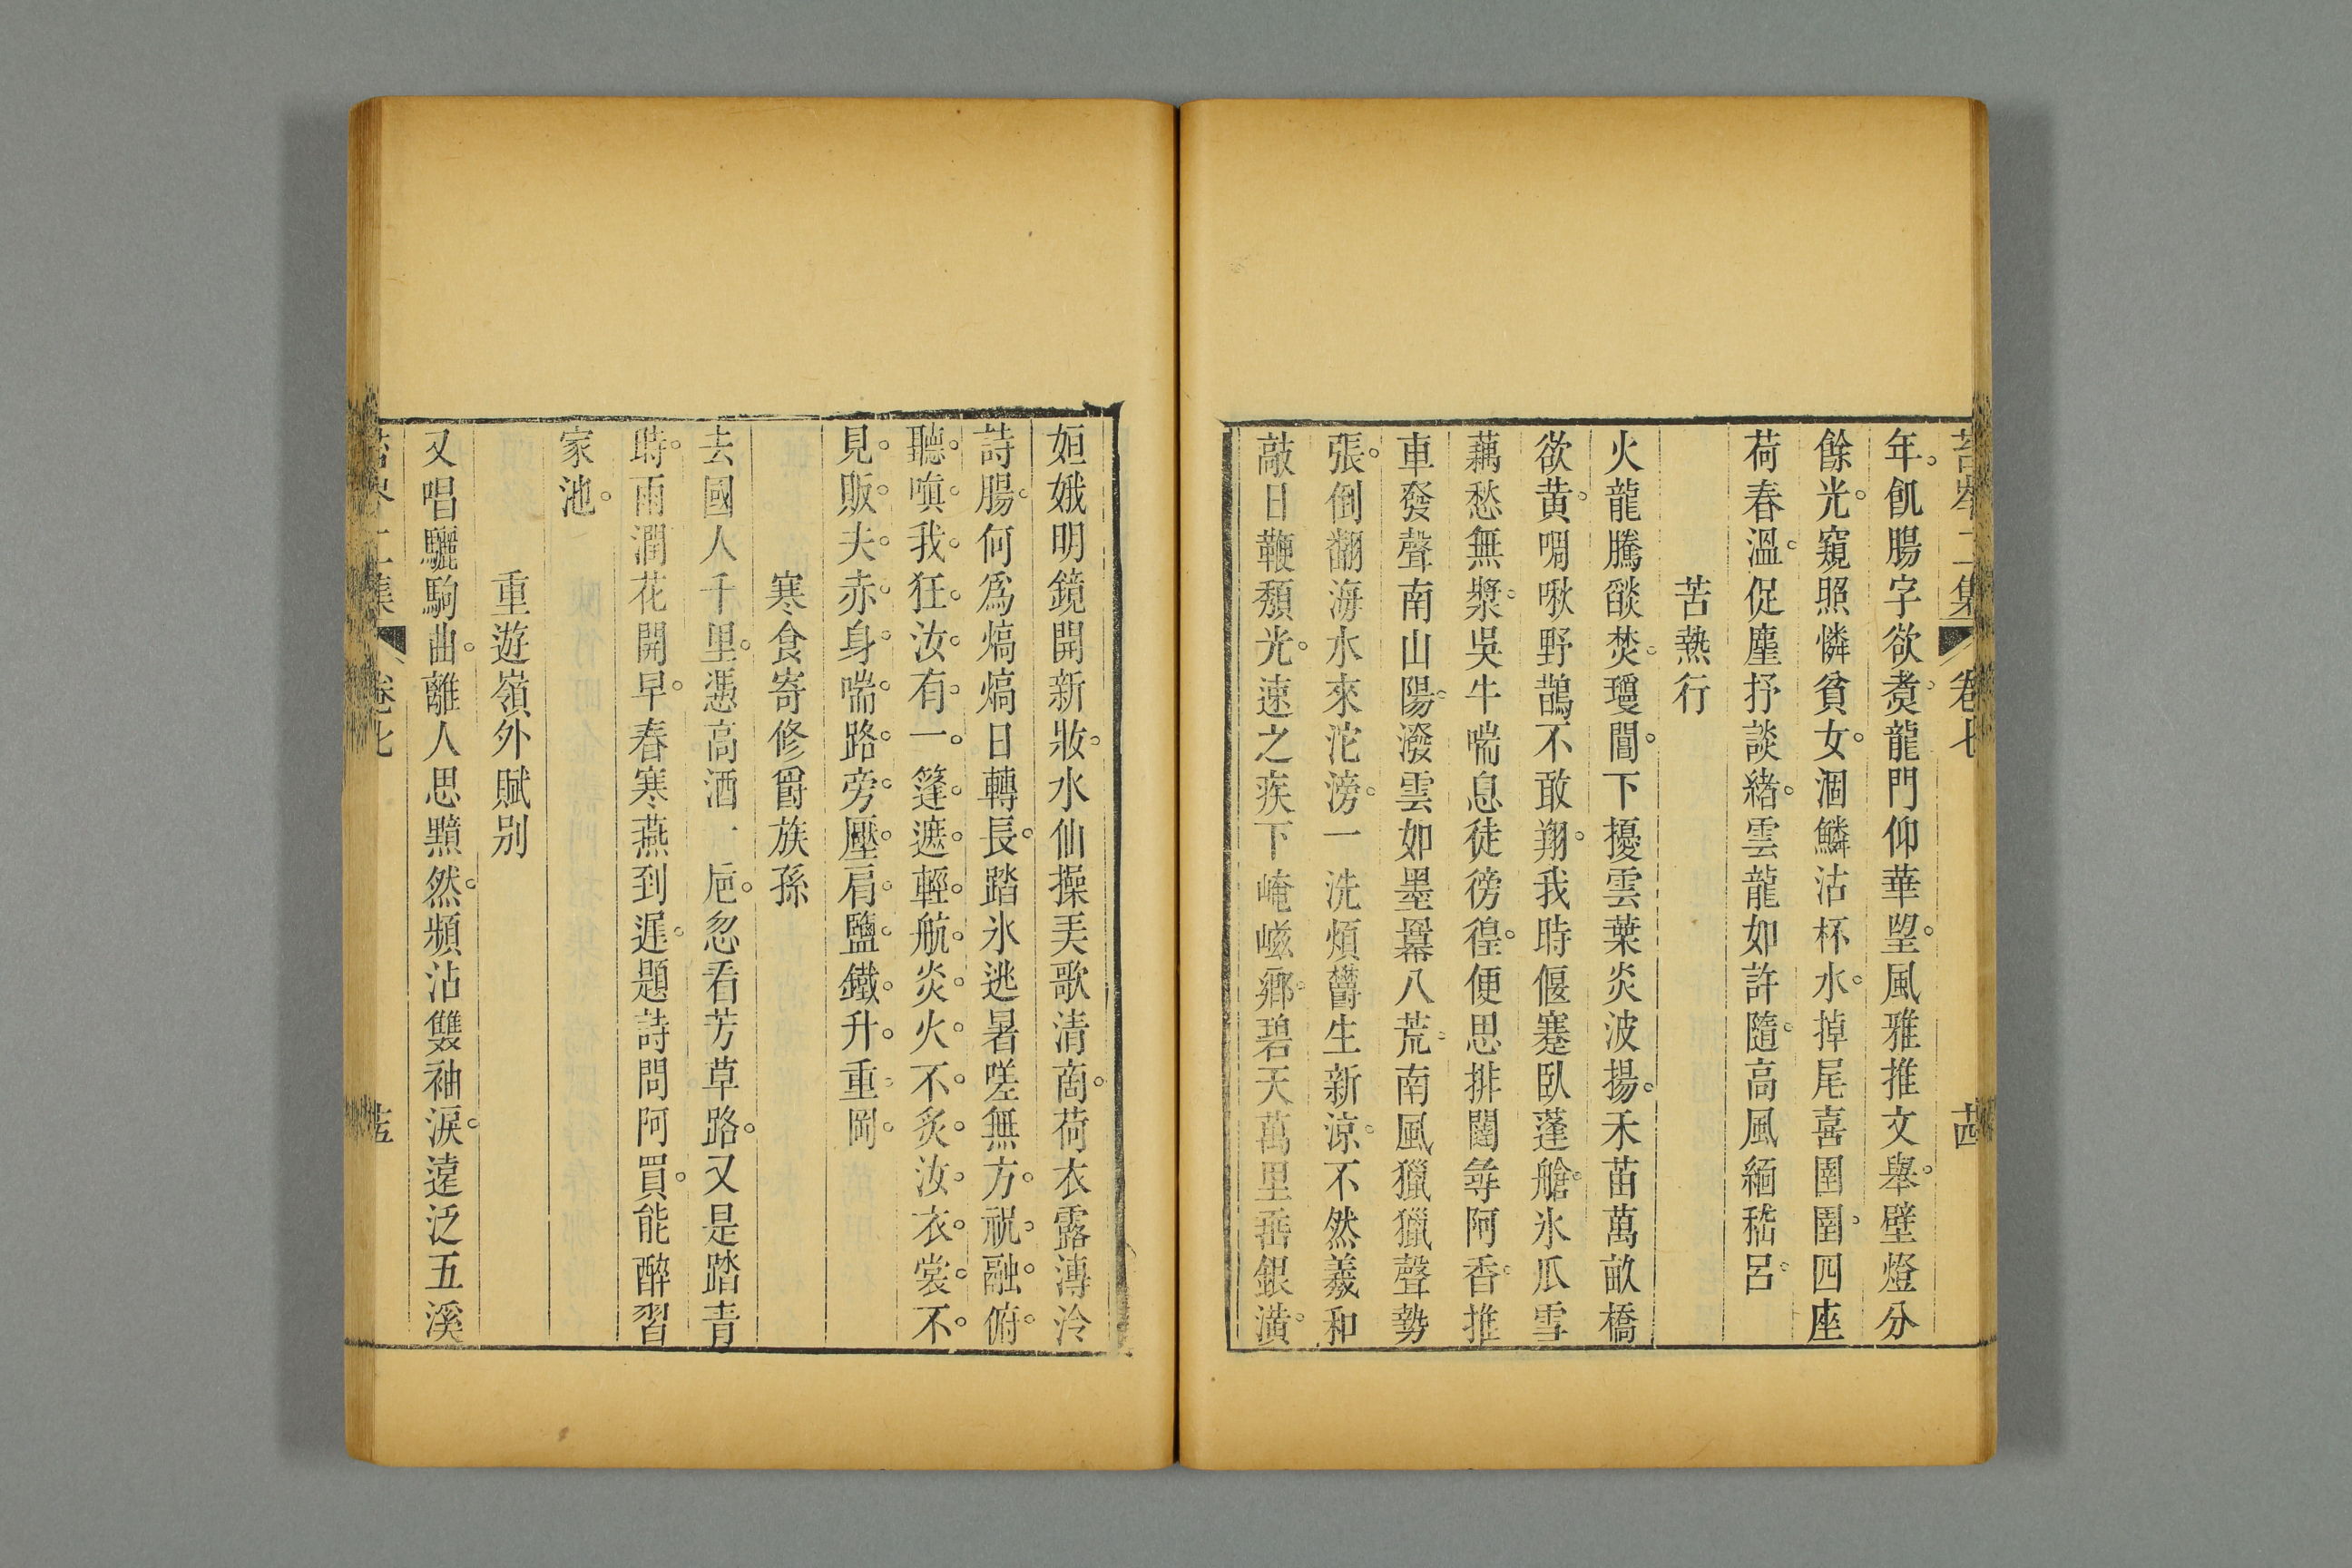 苔岑二集 卷七 茜
年。飢腸字欲煑。龍門仰華望。風雅推文舉。壁燈分
餘光。窺照憐貧女。涸鱗沽杯水。掉尾喜圉圉。四座
荷春溫。促塵抒談緒。雲龍如許隨。高風緬嵇呂。
苦熱行
火龍騰燄焚瓊閶。下擾雲葉炎波揚。禾苗萬畝橋
欲黃。啁啾野鵲不敢翔。我時偃蹇臥蓬艙。氷瓜雪
藕愁無漿。吳牛喘息徒徬徨。便思排闥尋阿香。推
車發聲南山陽。潑雲如墨羃八荒。南風獵獵聲勢
張。倒翻海水來沱滂。一洗煩欝生新涼。不然羲和
敲日鞭頹光。速之疾下崦嵫鄉。碧天萬里垂銀潢。
姮娥明鏡開新妝。水仙操美歌清商。荷衣露漙泠
詩腸。何爲熇熇日轉長。踏氷逃暑嗟無方。祝融俯
聽嗔我狂。汝有一篷遮輕航。炎火不炙汝衣裳。不
見販夫赤身喘路旁。壓肩鹽鐵升重岡。
寒食寄修爵族孫
去國人千里。憑高酒一巵。忽看芳草路。又是踏青
時。雨潤花開早。春寒燕到遲。題詩問阿買。能醉習
家池。
重遊嶺外賦别
又唱驪駒曲。離人思黯然。頻沾雙袖淚。遠泛五溪
苔岑二集 卷七